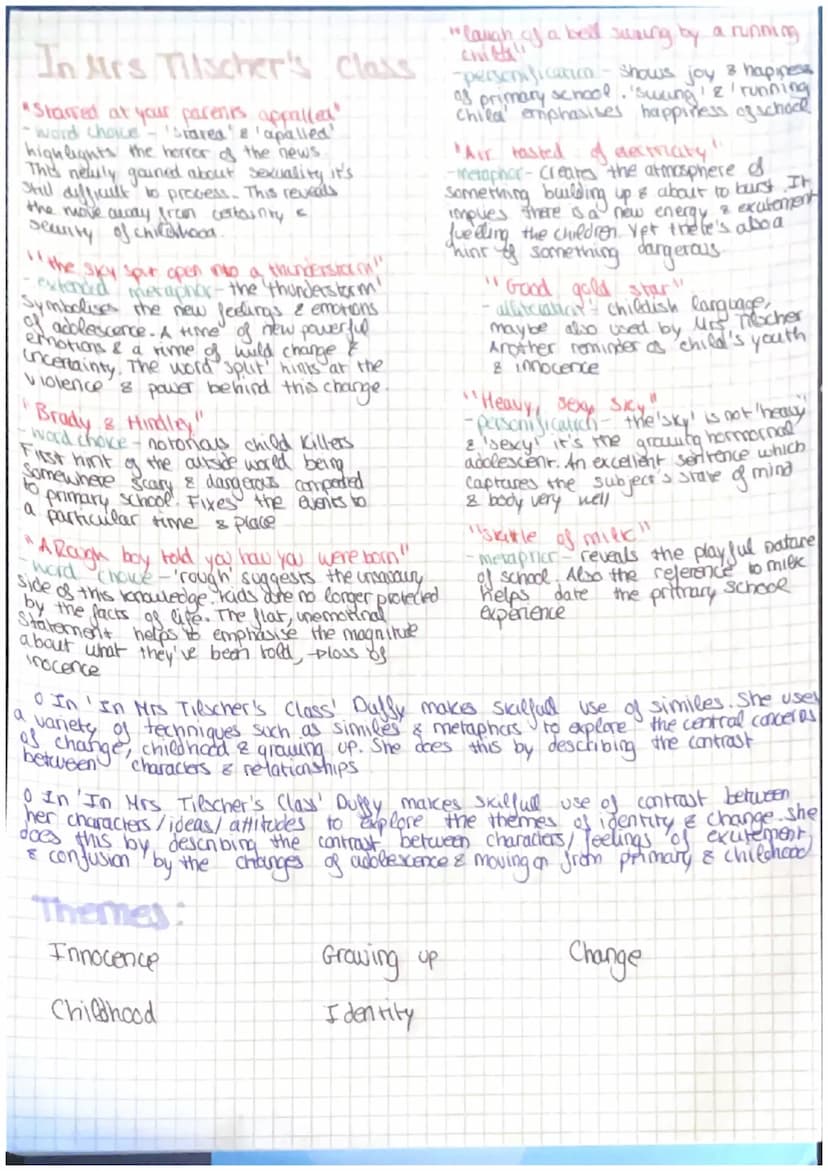 In Mrs Tilscher's Class
"Starred at your parents appalled"
- word choice - 'stared' & 'apalled'
highlights the horror of the news.
This newly gained about sexuality it's
still difficult to process. This reveals
the move away from certainty &
security of childhood.
"the sky split open into a thunderstorm"
- extended metaphor - the 'thunderstorm'
symbolises the new feelings & emotions
of adolescence. A time of new powerful
emotions & a time of wild change &
uncertainty. The word 'split' hints at the
violence & power behind this change.
"Brady & Hindley"
- word choice - notorious child killers
First hint of the outside world being
somewhere scary & dangerous compared
to primary school. Fixes the events to
a particular time & place
"A Rough boy told you how you were born"
- word choice - 'rough' suggests the
side of this knowledge. Kids are no longer protected
by the facts of life. The flat, unemotional
statement helps to emphasise the magnitude
about what they've been told, → loss of
inocence
"laugh of a bell swung by a running
child"
- personification - shows joy & hapiness
of primary school. 'swung' & 'running
child' emphasises happiness of school
"Air tasted of electricity"
- metaphor - creates the atmosphere of
something building up & about to burst. It
implies there is a new energy & excitement
fuelling the children. Yet there's also a
hint of something dangerous
"Good gold star"
- alliteration - childish language,
maybe also used by Mrs Tilscher
Another reminder of child's youth
& innocence
"Heavy, sexy sky"
- personification - the 'sky' is not 'heavy'
& 'sexy' it's the growing hormornal
adolescent. An excellent sentence which
captures the subject's state of mind
& body very well
"Skittle of milk"
- metaphor - reveals the playful nature
of school. Also the reference to milk
helps date the primary school
experience
o In 'In Mrs Tilscher's Class' Duffy makes skillfull use of similes. She uses
a variety of techniques such as similes & metaphors to explore the central concerns
of change, childhood & growing up. She does this by describing the contrast
between characters & relationships
o In 'In Mrs Tilscher's Class' Duffy makes skillfull use of contrast between
her characters/ideas/attitudes to explore the themes of identity & change. She
does this by describing the contrast between characters/feelings of excitement
& confusion by the changes of adolescence & moving on from primary & childhood
Themes:
Innocence Growing up Change
Childhood Identity